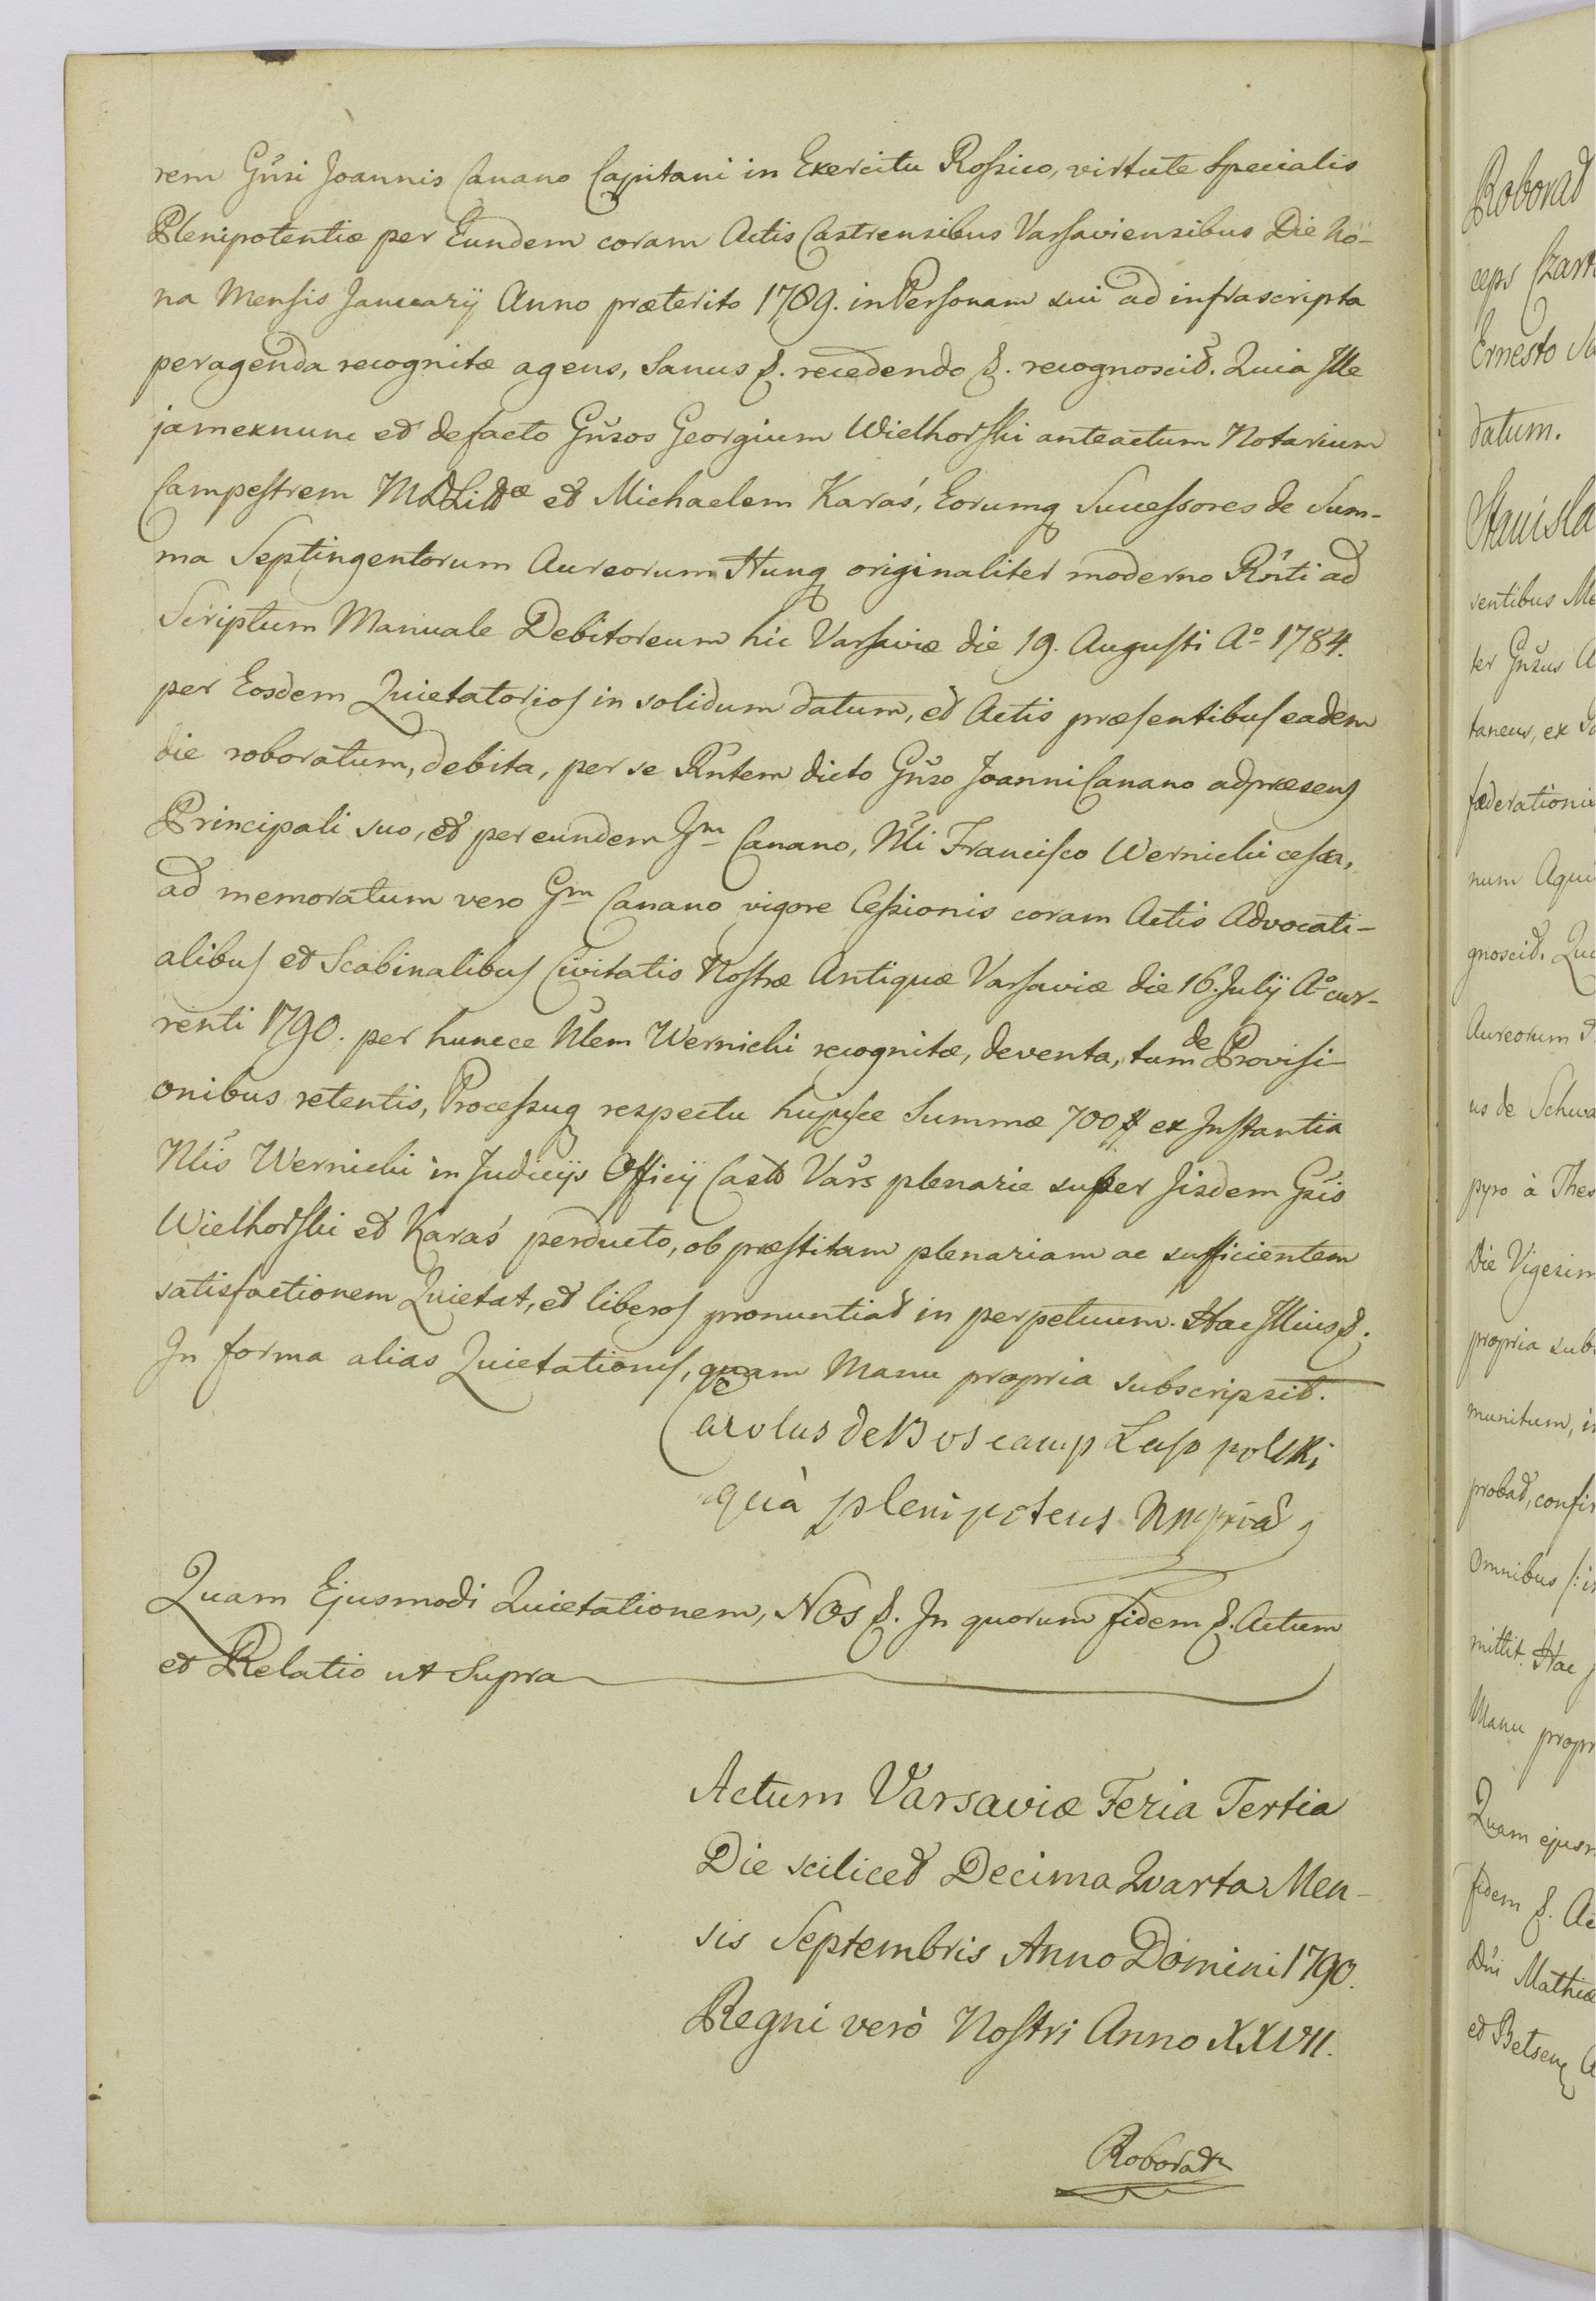 rem Gn̄si Joannis Canano Capitani in Exercitu Rossico, virtute Specialis
Plenipotentiæ per Eundem coram Actis Castrensibus Varsaviensibus Die No-
na Mensis Januarij Anno præterito 1789. in Personam sui ad infrascripta
peragenda recognitæ agens, Sanus &. recedendo &. recognoscit. Quia Ille
jamexnunc et defacto Gn̄sos Georgium Wielhorski anteactum Notarium
Campestrem MDLittæ et Michaelem Karaś, Eorumq Successores de Sum-
ma Septingentorum Aureorum Hung originaliter moderno Rn̄ti ad
Scriptum Manuale Debitoreum hic Varsaviæ die 19. Augusti Aº 1784.
per Eosdem Quietatorios in solidum datum, et Actis præsentibus eadem
die roboratum, debita, per se Rn̄tem dicto Gn̄so Joanni Canano adpræsens
Principali suo, et per eundem Gm Canano, Nli Francisco Wernicki cessa,
ad memoratum vero Gm Canano vigore Cessionis coram Actis Advocati-
alibus et Scabinalibus Civitatis Nostræ Antiquæ Varsaviæ die 16. Julij Aº cur-
renti 1790. per huncce Nlem Wernicki recognitæ, deventa, tum de Provisi-
onibus retentis, Processuq respectu hujusce Summæ 700 # ex Instantia
Nlis Wernicki in Judicijs Officij Castr Vars plenarie super Iisdem Gsis
Wielhorski et Karaś perducto, ob præstitam plenariam ac sufficientem
satisfactionem Quietat, et liberos pronuntiat in perpetuum. Hac Illius &.
In forma alias Quietationis, quam Manu propria subscripsit.
Carolus de Boscamp Lasopolski
quà plenipotens Mppria
Quam Ejusmodi Quietationem, Nos &. In quorum fidem &. Actum
et Relatio ut Supra
Actum Varsaviæ Feria Tertia
Die scilicet Decima Quarta Men-
sis Septembris Anno Domini 1790.
Regni verò Nostri Anno XXVII.
Roborat
Roborat
ceps Czart
Ernesto
datum.
Stanisla
sentibus
ter Gn̄sus
taneus, ex
fæderationis
num
gnoscit.
Aureorum
us de Schwa
pyro à Thes
Die Vigesim
propria sub
munitum, i
probat, confir
Omnibus
mittit. Hac
Manu propr
Quam ejusm
fidem &. Ac
Dn̄i Mathiæ